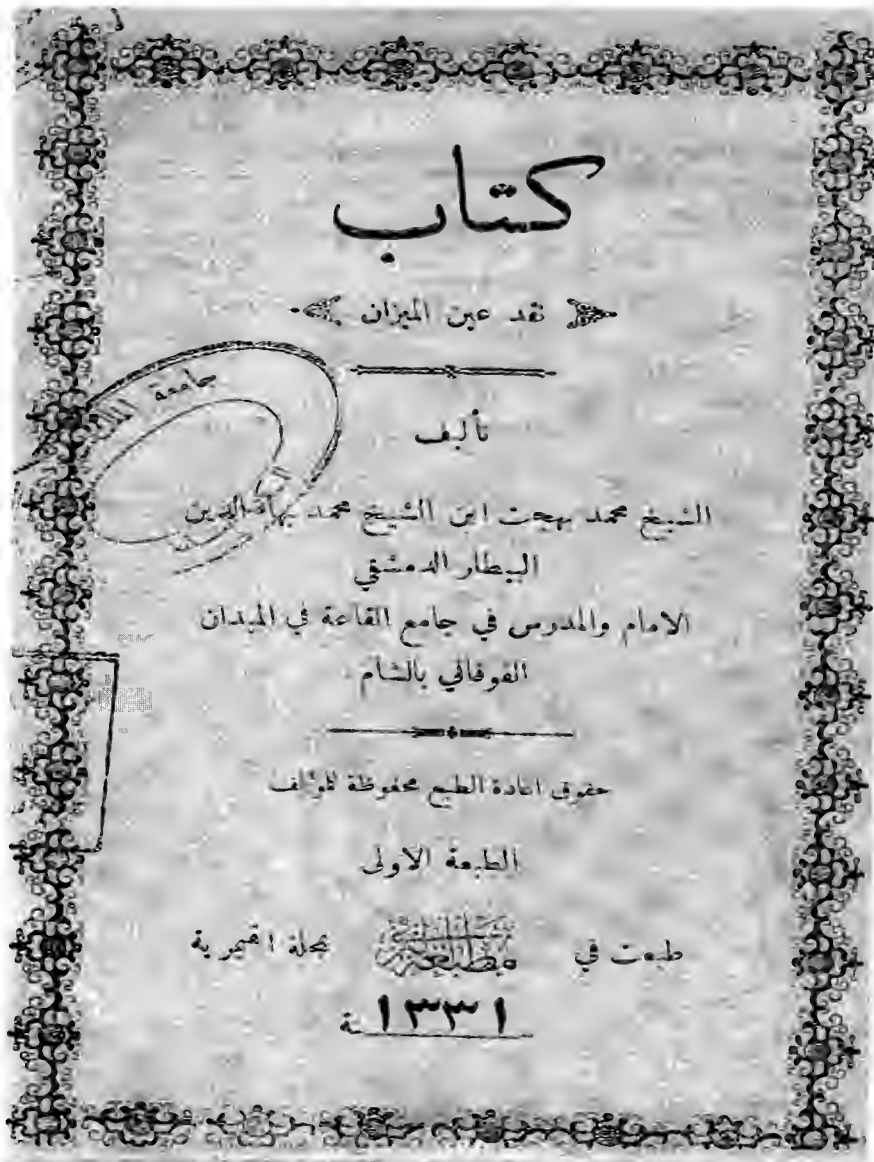 كتاب
نقد عين الميزان
تأليف
الشيخ محمد بهجت ابن الشيخ محمد بهاء الدين
البيطار الدمشقي
الامام والمدرس في جامع القاعة في الميدان
الفوقاني بالشام
حقوق اعادة الطبع محفوظة للمؤلف
الطبعة الاولى
طبعت في مطبعة بمحلة القيمرية
سنة ١٣٣١
جامعة